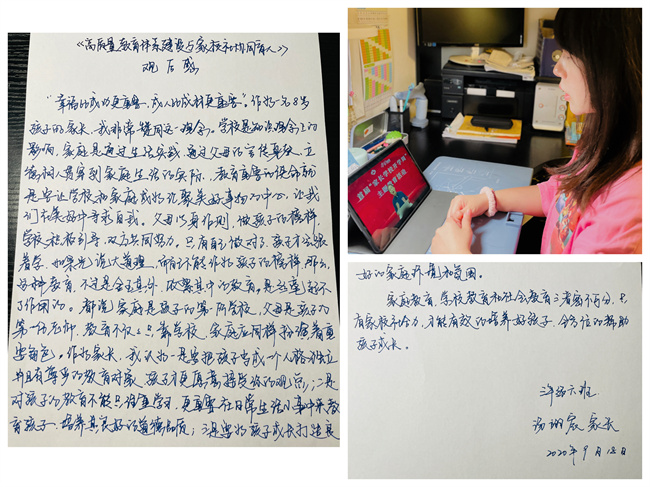 《高质量教育体系建设与家校社协同育人》
观后感
"幸福的成功更重要,成人的成材更重要"。作为一名8岁
孩子的家长,我非常赞同这一观念。学校是知识理念上的
影响,家庭是通过生活实践,通过父母的言传身教、立
德树人贯穿到家庭生活的实际。教育重要的使命就
是要让学校和家庭成为汇聚美好事物的中心,让我
们在美好中寻求自我。父母以身作则,做孩子的榜样,
学校积极引导,双方共同努力。只有自己做对了,孩子才会跟
着学,如果光说大道理,而自己不能作为孩子的榜样,那么,
各种教育,不过是金玉其外,败絮其中的教育,是起到不
了作用的。都说家庭是孩子的第一所学校,父母是孩子的
第一任老师,教育不仅仅只靠学校,家庭应同样扮演着重
要角色。作为家长,我认为:一是要把孩子当成一个人格独立
并且有尊严的教育对象,孩子才更愿意接受你的观点;二是
对孩子的教育不能只注重学习,更重要在日常生活小事中来教
育孩子,培养其良好的道德品质;三是要为孩子成长打造良
首届"家长学校开学周"
主题教育活动
好的家庭环境和氛围。
家庭教育、学校教育和社会教育三者密不可分,只
有家校社合力,才能有效的培养好孩子,全方位的帮助
孩子成长。
三年级六班
家长
2020年9月18日